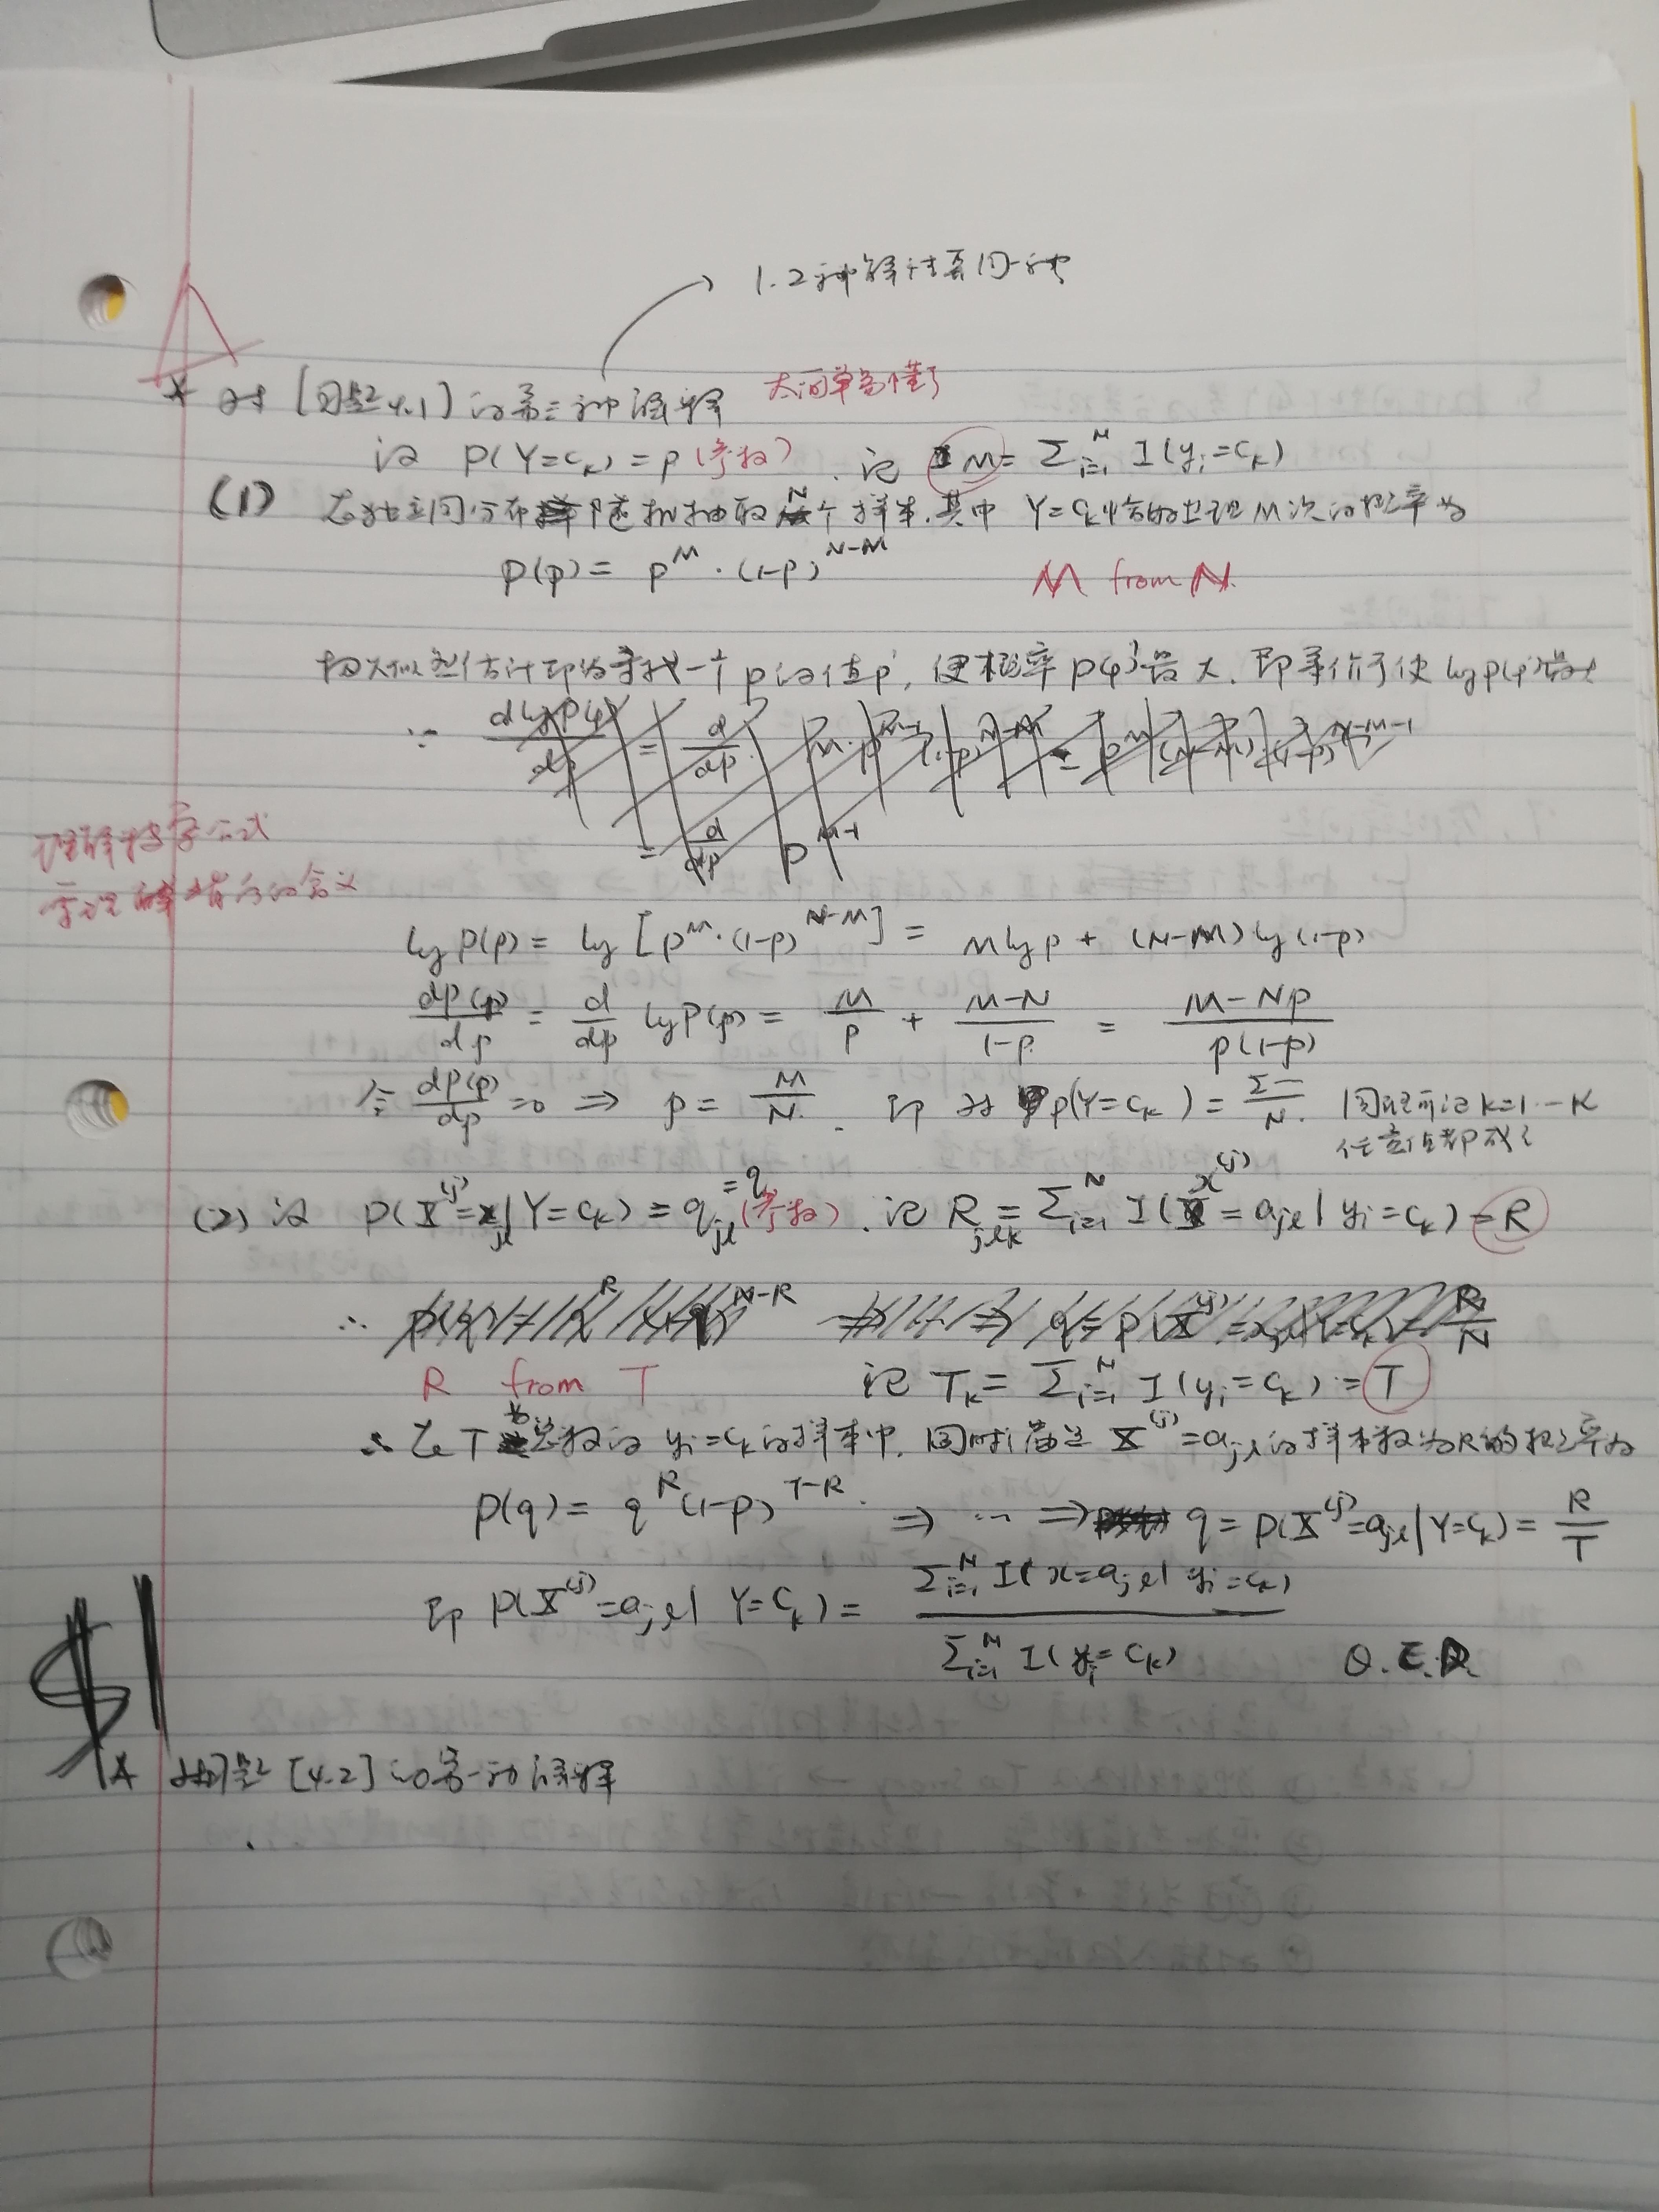 1.2种解法系同一种
* 对 [习题4.1] 的第三种解释 太简单易懂了
设 P(Y=c_k) = p (参数). 记 M = Σ_{i=1}^N I(y_i=c_k)
(1) 在独立同分布随机抽取N个样本.其中 Y=c_k恰好出现M次的概率为
P(p) = p^M · (1-p)^{N-M}
M from N.
极大似然估计即为寻找一个p的值p', 使概率P(p')最大. 即等价于使 lg P(p')最大
∵
理解极大公式
需理解背后的含义
lg P(p) = lg [p^M · (1-p)^{N-M}] = M lg p + (N-M) lg (1-p)
dP(p)/dp = d/dp lg P(p) = M/p + (M-N)/(1-p) = (M-Np)/(p(1-p))
令 dP(p)/dp = 0 ⇒ p = M/N. 即 对 P(Y=c_k) = Σ—/N. 因现所设k=1…K
任意值都成立
(2) 设 P(X^{(j)}=x_{jl}|Y=c_k) = q_{jl} = q (参数). 记 R_{jlk} = Σ_{i=1}^N I(x^{(j)} = a_{jl} | y_i = c_k) = R
∴
R from T 记 T_k = Σ_{i=1}^N I(y_i=c_k) = T
∴ 在T 个总数的 y_i=c_k的样本中. 同时满足 X^{(j)}=a_{jl}的样本数为R的概率为
P(q) = q^R (1-p)^{T-R}. ⇒ … ⇒ q = P(X^{(j)}=a_{jl}|Y=c_k) = R/T
即 P(X^{(j)}=a_{jl}| Y=c_k) = Σ_{i=1}^N I(x=a_{jl}| y_i=c_k) / Σ_{i=1}^N I(y_i=c_k) Q.E.D.
$1
* 对习题 [4.2] 的第一种解释